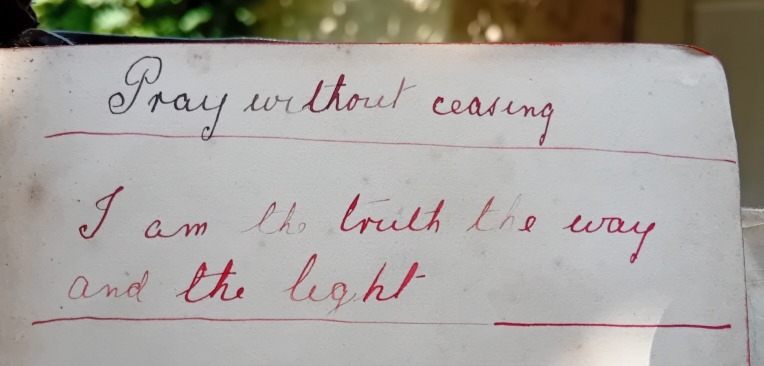 Pray without ceasing
I am the truth the way
and the light